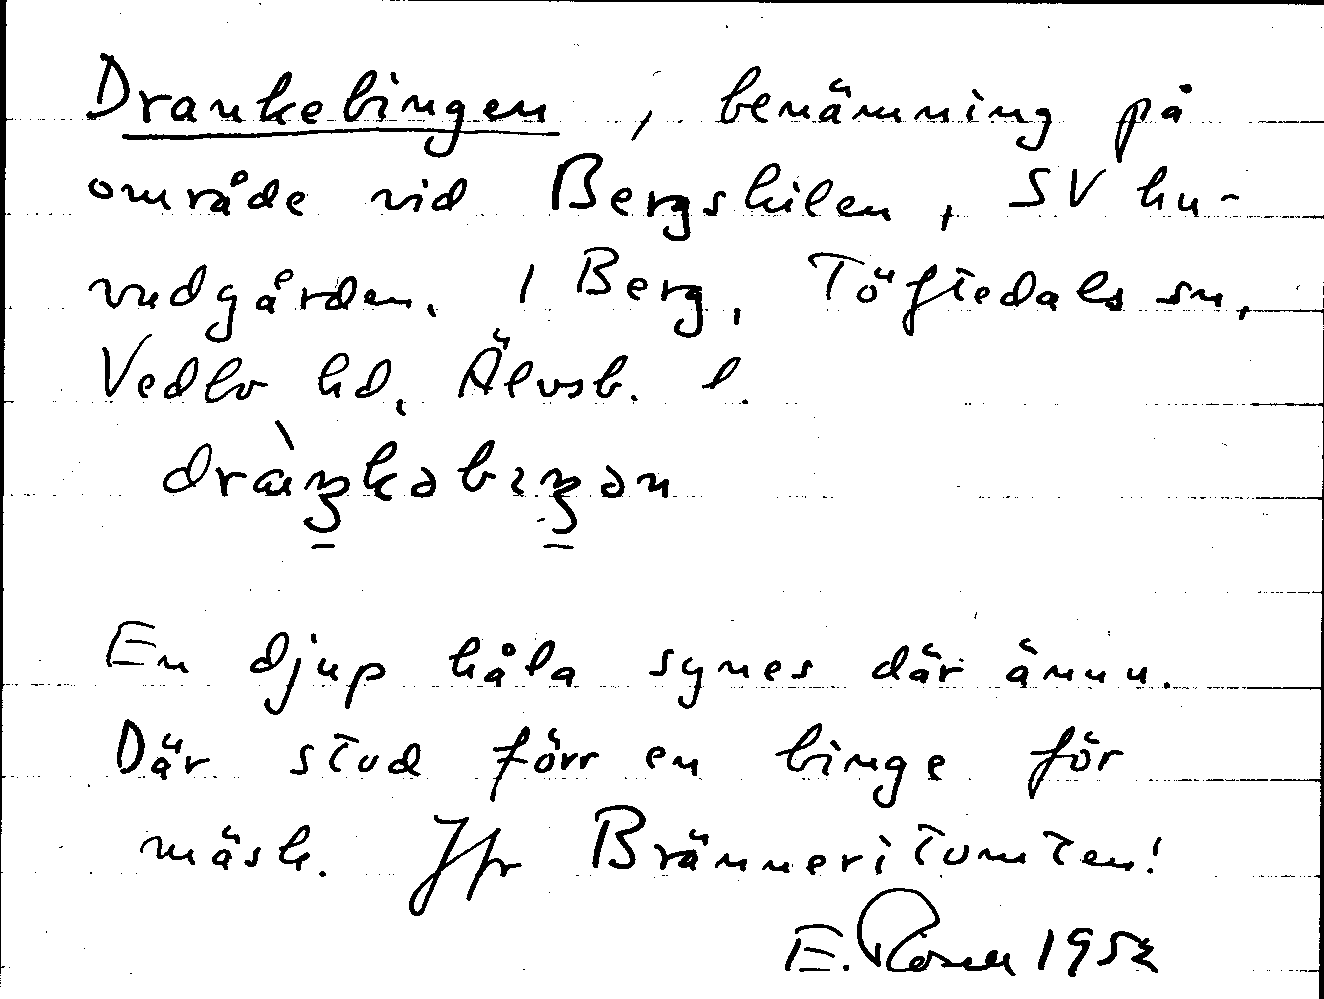 Drankebingen, benämning på
område vid Bergskilen, SV hu-
vudgården. 1 Berg, Töftedals sn,
Vedbo hd, Älvsb. l.
dràŋkəbıŋən
En djup håla synes där ännu.
Där stod förr en binge för
mäsk. Jfr Bränneritomten!
E. Rosell 1952